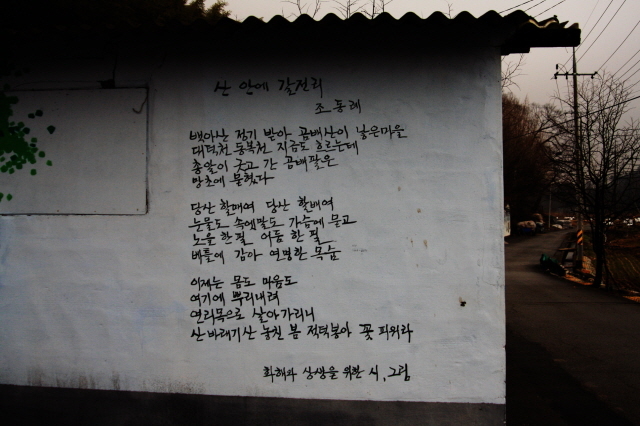 산 안에 갈전리
조동례
백아산 정기 받아 곰배산이 낳은마을
대덕천 동복천 지금도 흐르는데
총알이 긋고 간 곰배팔은
망초에 묻혔다
당산 할매여 당산 할배여
눈물도 속엣말도 가슴에 묻고
노을 한 필 어둠 한 필
베틀에 감아 연명한 목숨
이제는 몸도 마음도
여기에 뿌리내려
연리목으로 살아가리니
산바래기산 놓친 봄 적덕봉아 꽃 피워라
화해와 상생을 위한 시, 그림